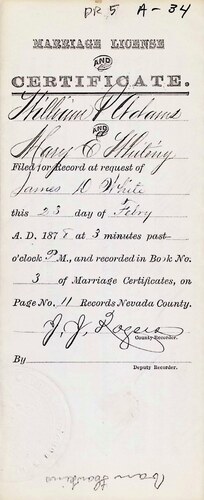 DR 5 A-34
MARRIAGE LICENSE
AND
CERTIFICATE.
William P Adams
AND
Mary E Whitney
Filed for Record at request of
James D White
this 23 day of Febry
A. D. 1878 at 3 minutes past
o'clock P M., and recorded in Book No.
3 of Marriage Certificates, on
Page No. 11 Records Nevada County.
J. J. Rogers
County Recorder.
By
Deputy Recorder.